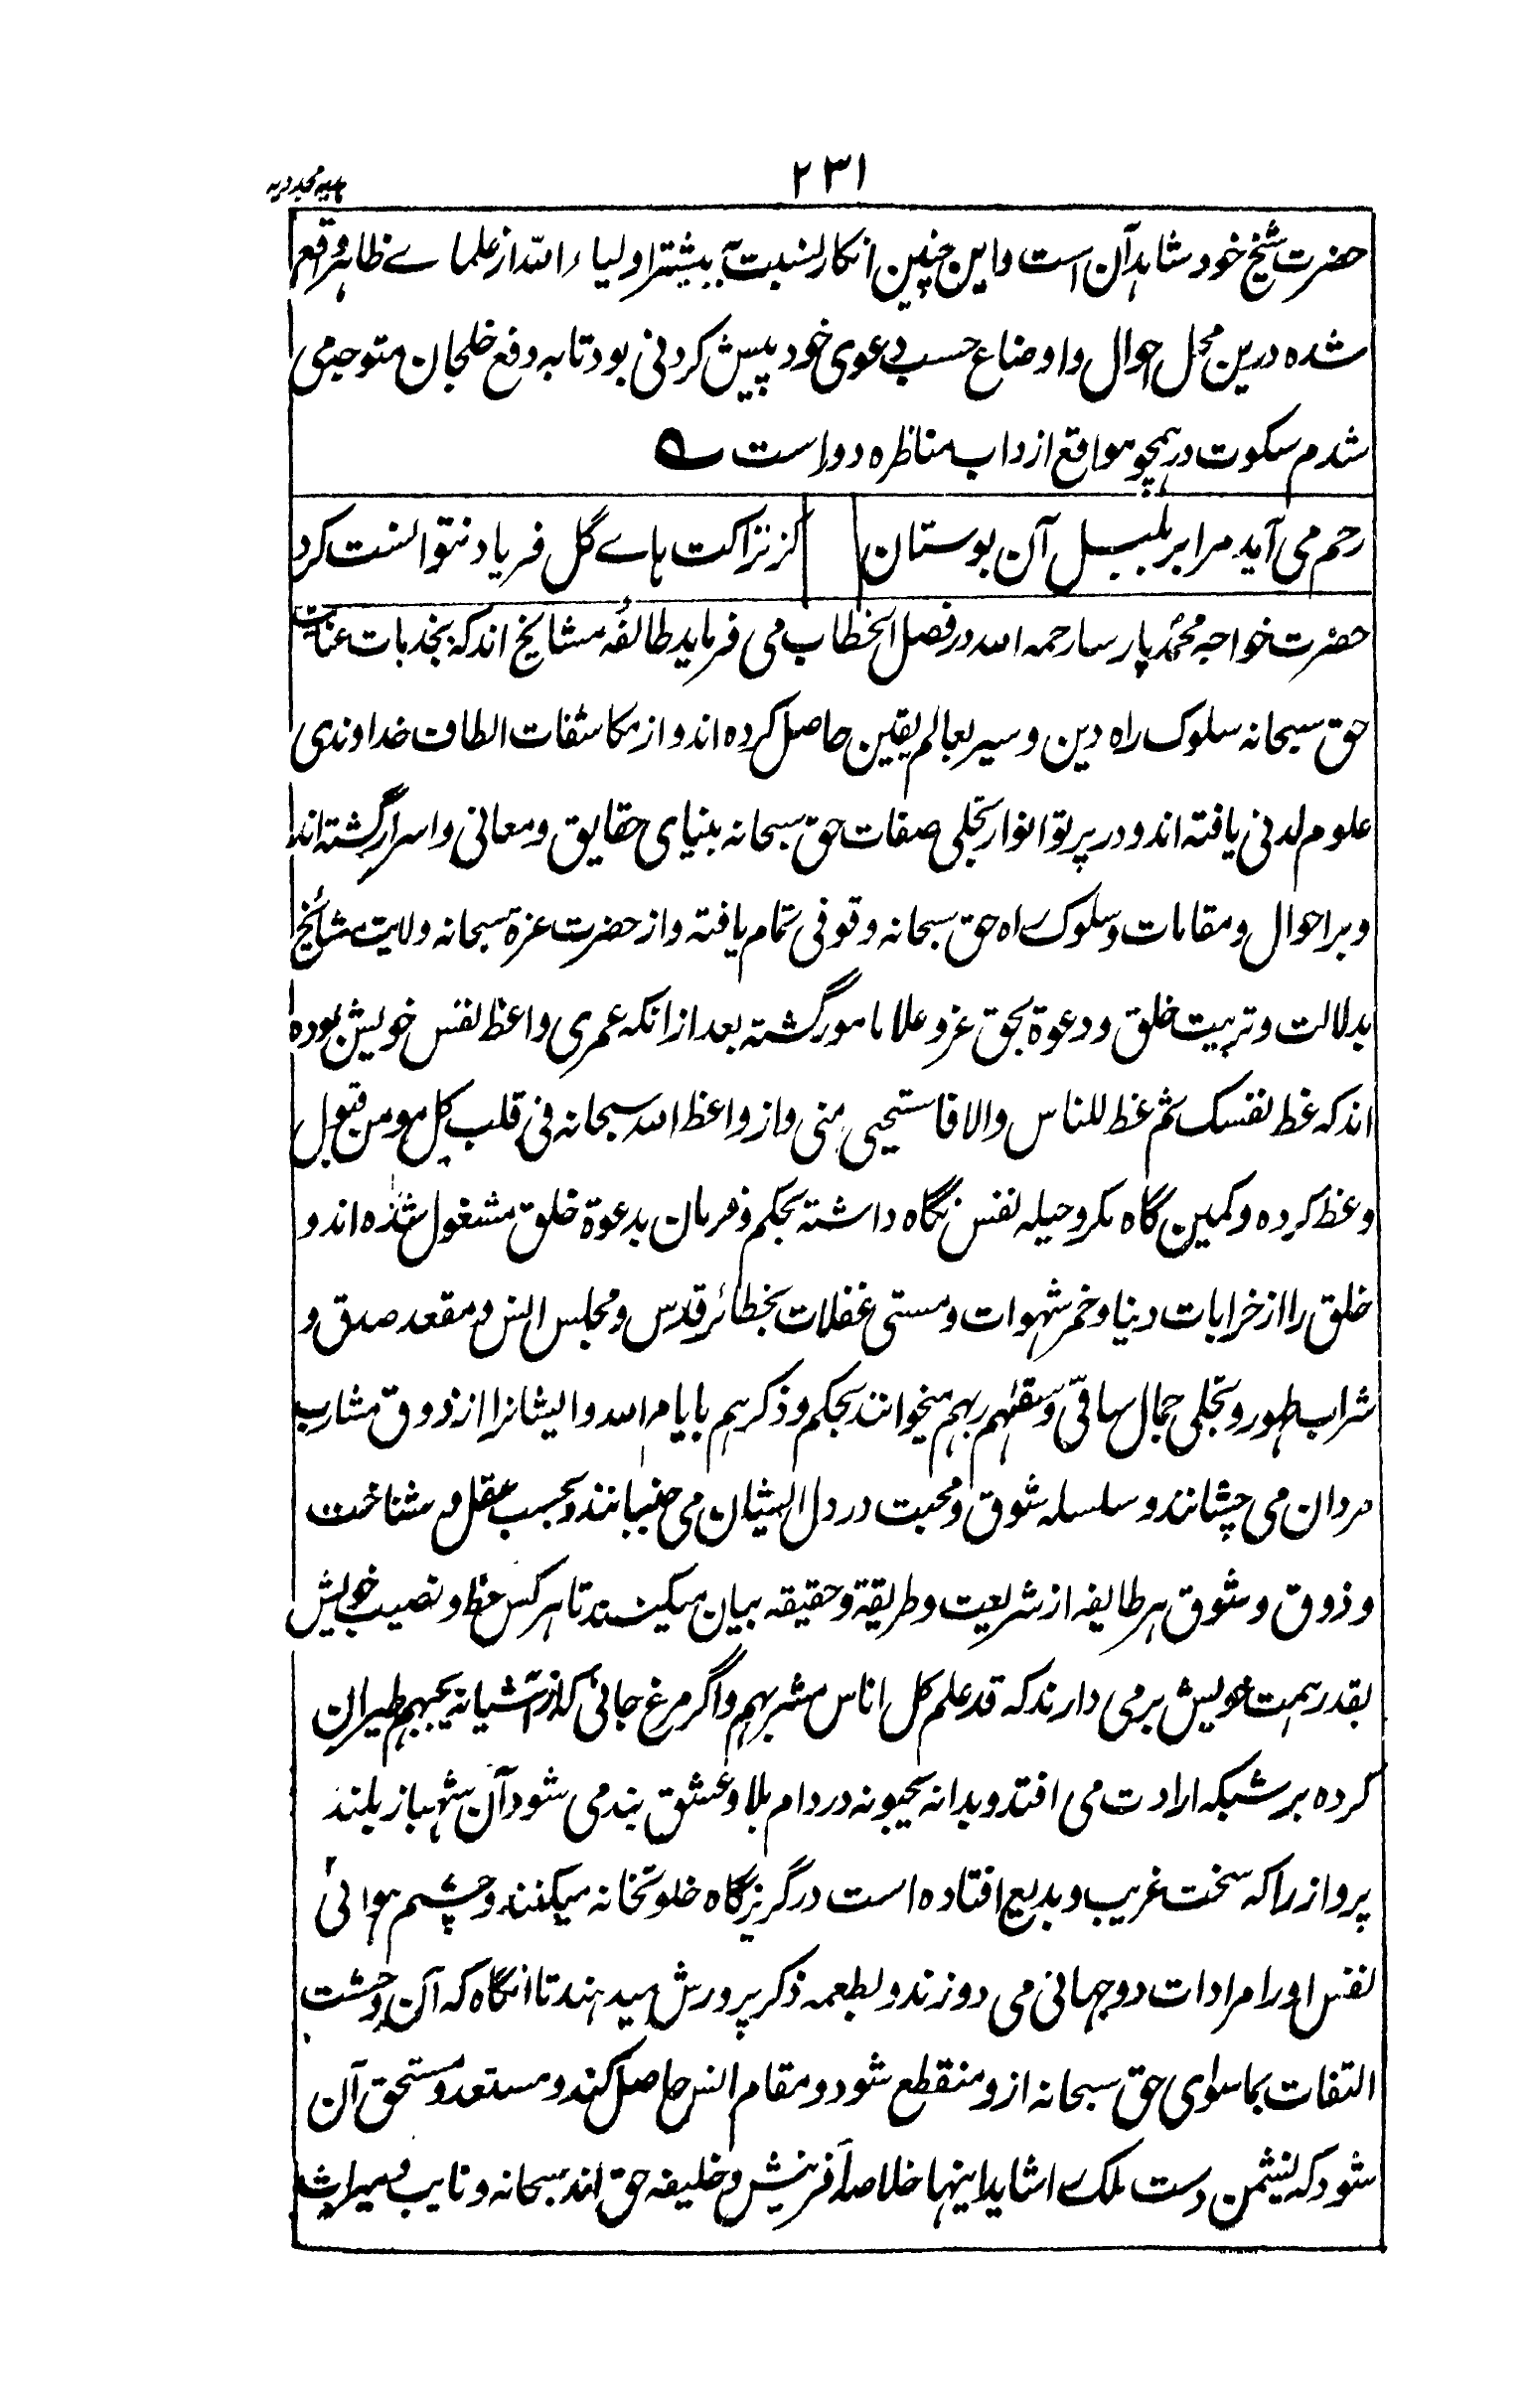 ۲۳۱
ہدیہ مجددیہ
حضرت شیخ خود شاہد آن است و این چنین انکار نسبت بہ بیشتر اولیاء اللہ از علماے ظاہر واقع
شدہ درین محل احوال و اوضاع حسب دعوی خود پیش کردنی بود تا بہ دفع خلجان متوجہ می
شدم سکوت در ہمچو مواقع از داب مناظرہ دور است ؎
رحم می آید مرا بر بلبل آن بوستان | کز نزاکت ہاے گل فریاد نتوانست کرد
حضرت خواجہ محمد پارسا رحمہ اللہ در فصل الخطاب می فرماید طائفہ مشایخ اند کہ بجذبات عنایت
حق سبحانہ سلوک راہ دین و سیر بعالم یقین حاصل کردہ اند و از مکاشفات الطاف خداوندی
علوم لدنی یافتہ اند و در پرتو انوار تجلی صفات حق سبحانہ بینای حقایق و معانی و اسرار گشتہ اند
و بر احوال و مقامات و سلوک راہ حق سبحانہ وقوفی تمام یافتہ و از حضرت عزۃ سبحانہ ولایت مشائخ
بدلالت و تربیت خلق و دعوۃ بحق عز و علا مامور گشتہ بعد از انکہ عمری واعظ نفس خویش بودہ
اند کہ عظ نفسک ثم عظ للناس والا فاستحیی منی و از واعظ اللہ سبحانہ فی قلب کل مومن قبول
وعظ کردہ و کمین گاہ مکر و حیلہ نفس نگاہ داشتہ بحکم فرمان بدعوۃ خلق مشغول شدہ اند و
خلق را از خرابات دنیا و خمر شہوات و مستی غفلات بحظائر قدس و مجلس انس و مقعد صدق و
شراب طہور و تجلی جمال ساقی و سقٰہم ربہم میخوانند بحکم و ذکرہم بایام اللہ و ایشانرا از ذوق مشارب
مردان می چشانند و سلسلہ شوق و محبت در دل ایشان می جنبانند و بحسب عقل و شناخت
و ذوق و شوق ہر طایفہ از شریعت و طریقۃ و حقیقہ بیان میکنند تا ہر کس حظ و نصیب خویش
بقدر ہمت خویش بر می دارند کہ قد علم کل اناس مشربہم و اگر مرغ جانی کہ از آشیانہ یحبہم طیران
کردہ بر شبکہ ارادت می افتد و بدانہ یحبونہ در دام بلا و عشق بند می شود آن شہباز بلند
پرواز را کہ سخت غریب و بدیع افتادہ است در گریزگاہ خلوتخانہ میکنند و چشم ہوائی
نفس او را مرادات دو جہانی می دوزند و لطعمہ ذکر پرورش میدہند تا انگاہ کہ آن وحشت
التفات بماسوای حق سبحانہ از و منقطع شود و مقام انس حاصل کند و مستعد و مستحق آن
شود کہ نشیمن دست ملک را شاید اینہا خلاصۂ آفرینش و خلیفہ حق اند سبحانہ و نایب و میراث